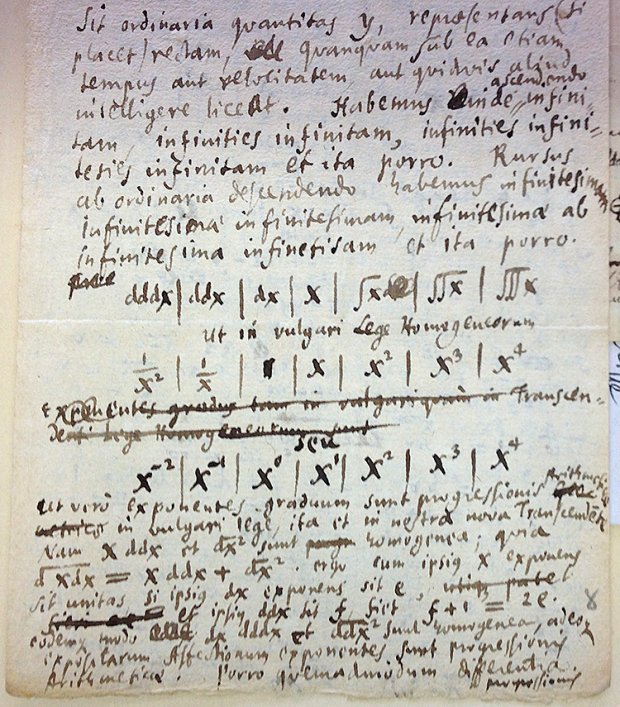 Sit ordinaria quantitas y, repræsentans (si
placet) rectam, quanquam sub ea etiam
tempus aut velocitatem, aut quidvis aliud
intelligere liceat. Habemus inde, ascendendo infini-
tam, infinities infinitam, infinities infini-
ties infinitam et ita porro. Rursus
ab ordinaria descendendo habemus infinitesimam
infinitesimæ infinitesimam, infinitesimæ ab
infinitesima infinetisam et ita porro.
dddx | ddx | dx | x | ∫x | ∬x | ∭x
ut in vulgari Lege Homogeneorum
1/x² | 1/x | 1 | x | x² | x³ | x⁴
Exponentes gradus tam in vulgari quam in Transcen-
denti Lege Homogeneorum sunt
seu
x⁻² | x⁻¹ | x⁰ | x¹ | x² | x³ | x⁴
ut vero exponentes graduum sunt progressionis Arithmeti-
in vulgari lege, ita et in nostra nova Transcendente
Nam x ddx et dx² sunt homogenea; quia
d xdx = x ddx + dx². ergo cum ipsius x exponens
sit unitas, si ipsius dx exponens sit e,
et ipsius ddx sit f, fiet f + 1 = 2e. 8
eodem modo dx dddx et ddx² sunt homogenea, adeoq
expositarum Affectionum exponentes sunt progressionis
Arithmeticæ. Porro quemadmodum differentia
progressionis